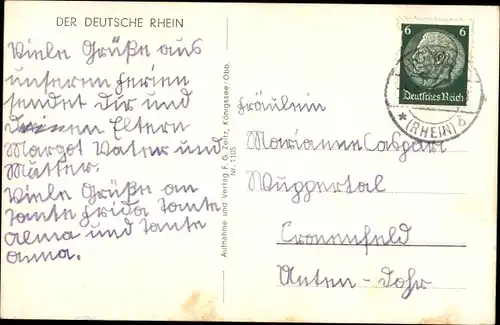 DER DEUTSCHE RHEIN
Viele Grüße aus
unseren Ferien
sendet dir und
deinen Eltern
Margot Vater und
Mutter.
Viele Grüße an
Tante Frida Tante
Alma und Tante
Anna.
Aufnahme und Verlag F. G. Zeitz, Königssee/Obb.
Nr. 1105
6 6
Deutsches Reich
(RHEIN) b
Fräulein
Marianne Caspari
Wuppertal
Cronenfeld
Unten-Dohr